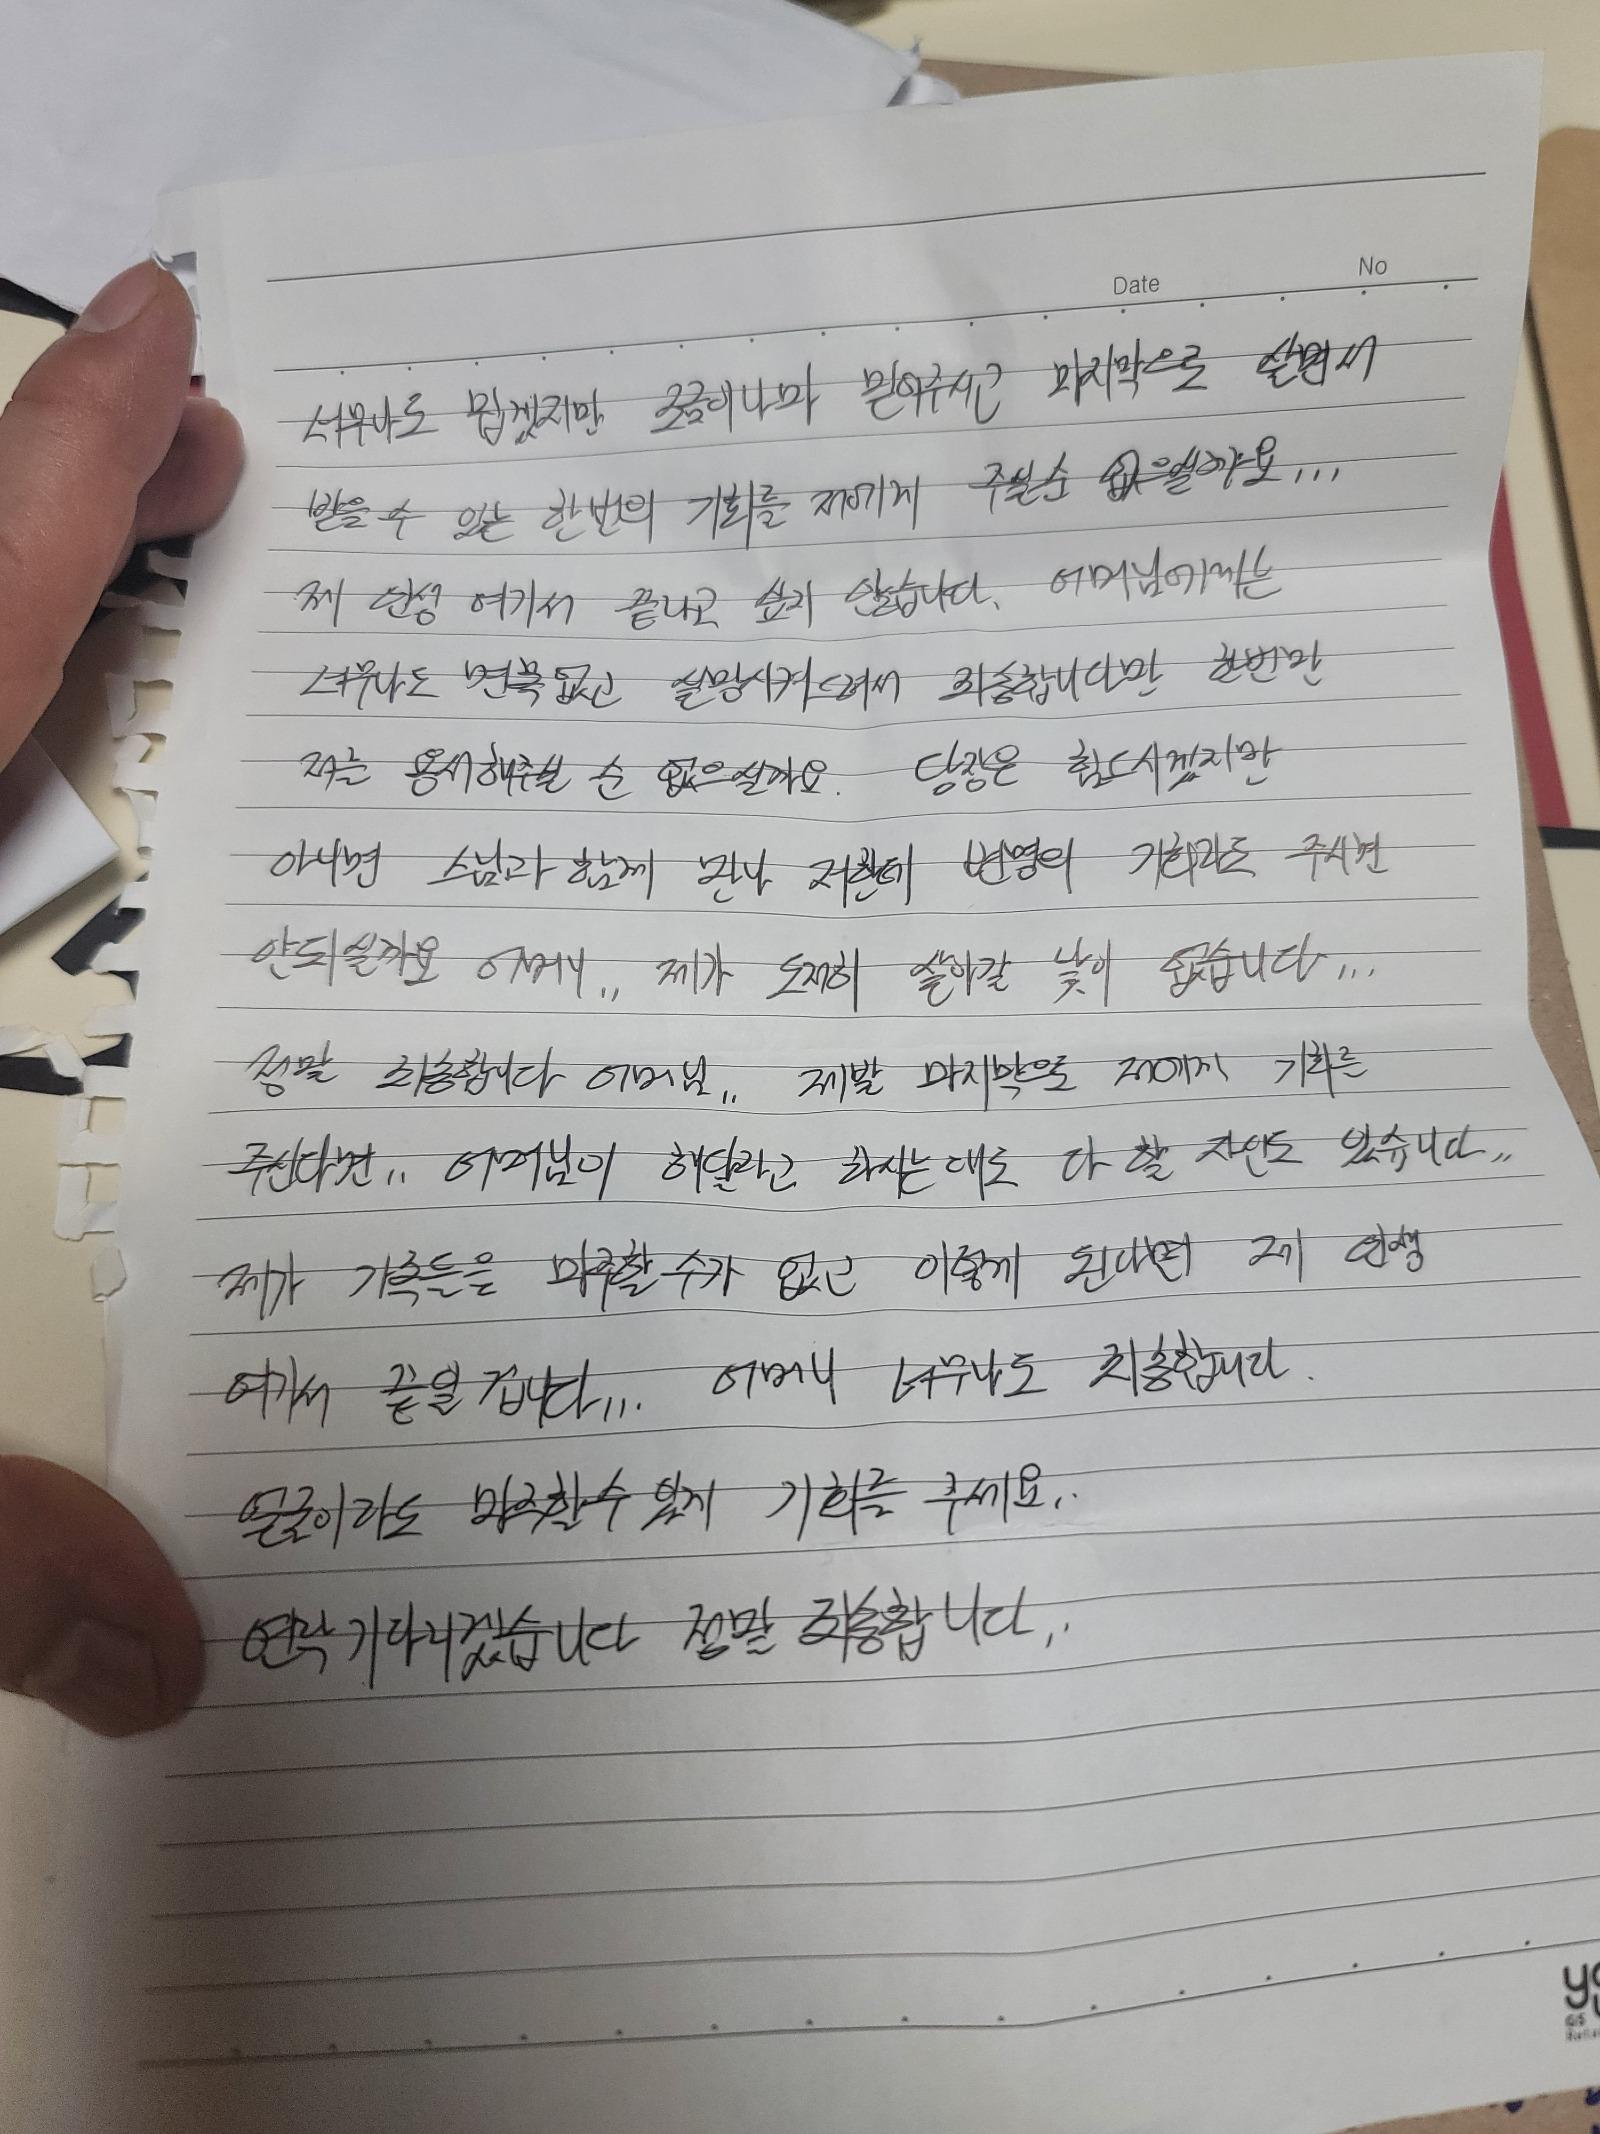 Date No
너무나도 밉겠지만 조금이나마 믿어주시고 마지막으로 살면서
받을 수 있는 한번의 기회를 저에게 주실순 없으실까요...
제 인생 여기서 끝나고 싶지 않습니다. 어머님에게는
너무나도 면목없고 실망시켜드려서 죄송합니다만 한번만
저를 용서해주실 순 없으실까요. 당장은 힘드시겠지만
아니면 스님과 함께 만나 저한테 변명의 기회라도 주시면
안되실까요 어머니.. 제가 도저히 살아갈 낯이 없습니다...
정말 죄송합니다 어머님.. 제발 마지막으로 저에게 기회를
주신다면.. 어머님이 해달라고 하시는대로 다 할 자신도 있습니다..
제가 가족들을 마주할 수가 없고 이렇게 된다면 제 인생
여기서 끝일 겁니다... 어머니 너무나도 죄송합니다.
얼굴이라도 마주할수 있게 기회를 주세요..
연락 기다리겠습니다 정말 죄송합니다..